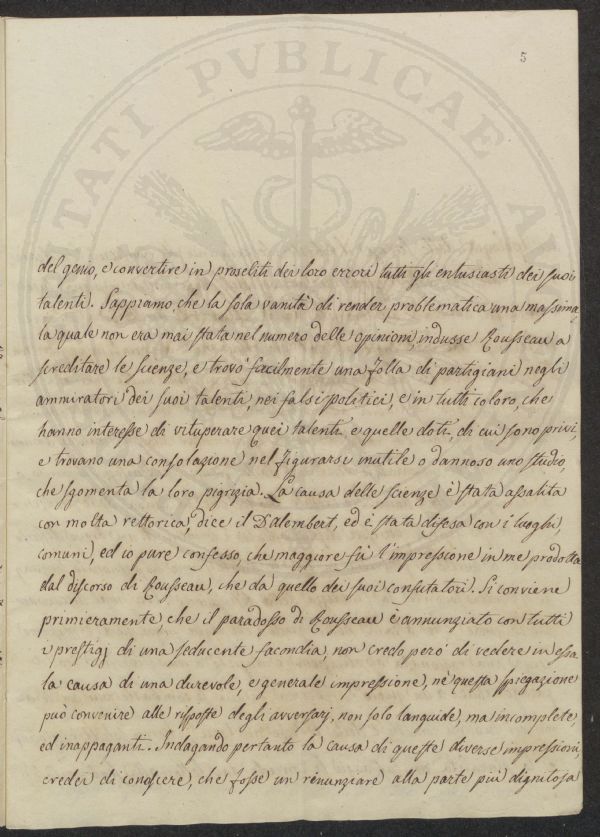 5
TATI PVBLICAE
del genio, e convertire in proseliti dei loro errori tutti gli entusiasti dei suoi
talenti. Sappiamo, che la sola vanità di render problematica una massima,
la quale non era mai stata nel numero delle opinioni, indusse Rousseau a
screditare le scienze, e trovò facilmente una folla di partigiani negli
ammiratori dei suoi talenti, nei falsi politici, e in tutti coloro, che
hanno interesse di vituperare quei talenti e quelle doti, di cui sono privi,
e trovano una consolazione nel figurarsi inutile o dannoso uno studio,
che sgomenta la loro pigrizia. La causa delle scienze è stata assalita
con molta rettorica, dice il Dalembert, ed è stata difesa con i luoghi
comuni, ed io pure confesso, che maggiore fu l'impressione in me prodotta
dal discorso di Rousseau, che da quello dei suoi confutatori. Si conviene
primieramente, che il paradosso di Rousseau è annunziato con tutti
i prestigj di una seducente facondia, non credo però di vedere in essa
la causa di una durevole, e generale impressione, nè questa spiegazione
può convenire alle risposte degli avversarj, non solo languide, ma incomplete,
ed inappaganti. Indagando pertanto la causa di queste diverse impressioni,
credei di conoscere, che fosse un rinunziare alla parte più dignitosa